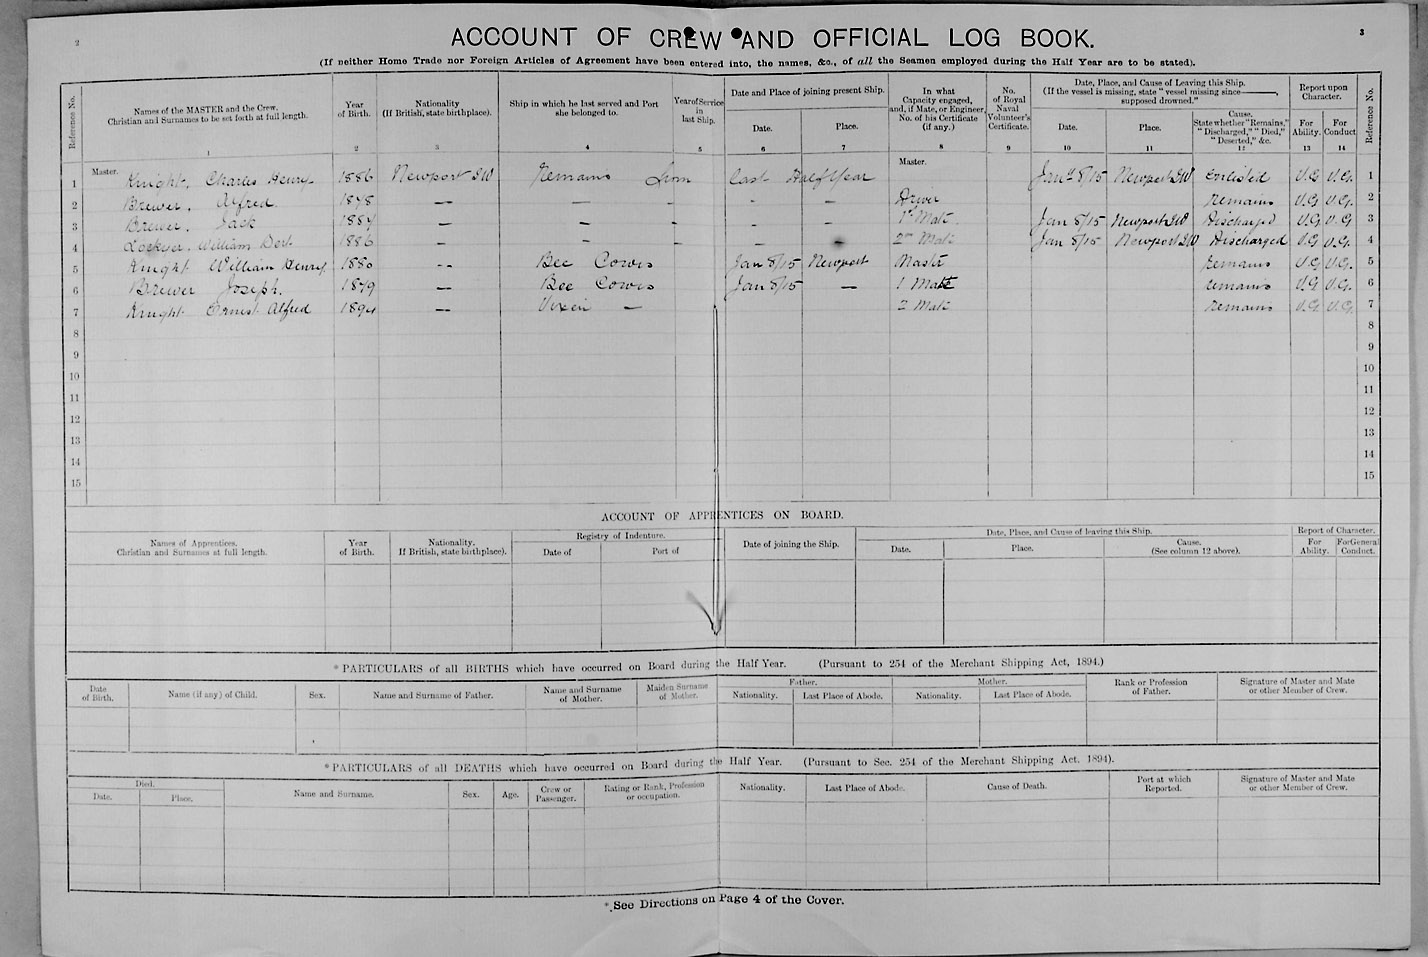 2
3
ACCOUNT OF CREW AND OFFICIAL LOG BOOK.
(If neither Home Trade nor Foreign Articles of Agreement have been entered into, the names, &c., of all the Seamen employed during the Half Year are to be stated).
Reference No. Names of the MASTER and the Crew. Christian and Surnames to be set forth at full length. Year of Birth. Nationality (If British, state birthplace). Ship in which he last served and Port she belonged to. Year of Service in last Ship. Date and Place of joining present Ship. Date. Place. In what Capacity engaged, and, if Mate, or Engineer, No. of his Certificate (if any.) No. of Royal Naval Volunteer's Certificate. Date, Place, and Cause of Leaving this Ship. (If the vessel is missing, state "vessel missing since———, supposed drowned." Date. Place. Cause. State whether "Remains," "Discharged," "Died," "Deserted," &c. Report upon Character. For Ability. For Conduct Reference No.
1 2 3 4 5 6 7 8 9 10 11 12 13 14
Master. Master.
1 Knight, Charles Henry 1886 Newport IW Remans from last Half Year Jany 8/15 Newport IW Enlisted V.G V.G. 1
2 Brewer. Alfred. 1878 — — - - - Driver remains V.G V.G. 2
3 Brewer. Jack 1884 — — - - - 1st Mate Jan 8/15 Newport IW Discharged V.G V.G 3
4 William Bert. 1886 - - - - - 2nd Mate Jan 8/15 Newport IW Discharged V.G V.G. 4
5 Knight William Henry 1880 -- Bee Cowes Jan 8/15 Newport Master remains V.G V.G. 5
6 Brewer Joseph. 1879 — Bee Cowes Jan 8/15 — 1 Mate remains V.G V.G. 6
7 Knight Ernest Alfred 1894 — Vixen — 2 Mate remains V.G. V.G. 7
8 8
9 9
10 10
11 11
12 12
13 13
14 14
15 15
ACCOUNT OF APPRENTICES ON BOARD.
Names of Apprentices. Christian and Surnames at full length. Year of Birth. Nationality. If British, state birthplace). Registry of Indenture. Date of Port of Date of joining the Ship. Date, Place, and Cause of leaving this Ship. Date. Place. Cause. (See column 12 above). Report of Character. For Ability. For General Conduct.
*PARTICULARS of all BIRTHS which have occurred on Board during the Half Year. (Pursuant to 254 of the Merchant Shipping Act, 1894.)
Date of Birth. Name (if any) of Child. Sex. Name and Surname of Father. Name and Surname of Mother. Maiden Surname of Mother. Father. Nationality. Last Place of Abode. Mother. Nationality. Last Place of Abode. Rank or Profession of Father. Signature of Master and Mate or other Member of Crew.
*PARTICULARS of all DEATHS which have occurred on Board during the Half Year. (Pursuant to Sec. 254 of the Merchant Shipping Act. 1894).
Died. Date. Place. Name and Surname. Sex. Age. Crew or Passenger. Rating or Rank, Profession or occupation. Nationality. Last Place of Abode. Cause of Death. Port at which Reported. Signature of Master and Mate or other Member of Crew.
*See Directions on Page 4 of the Cover.